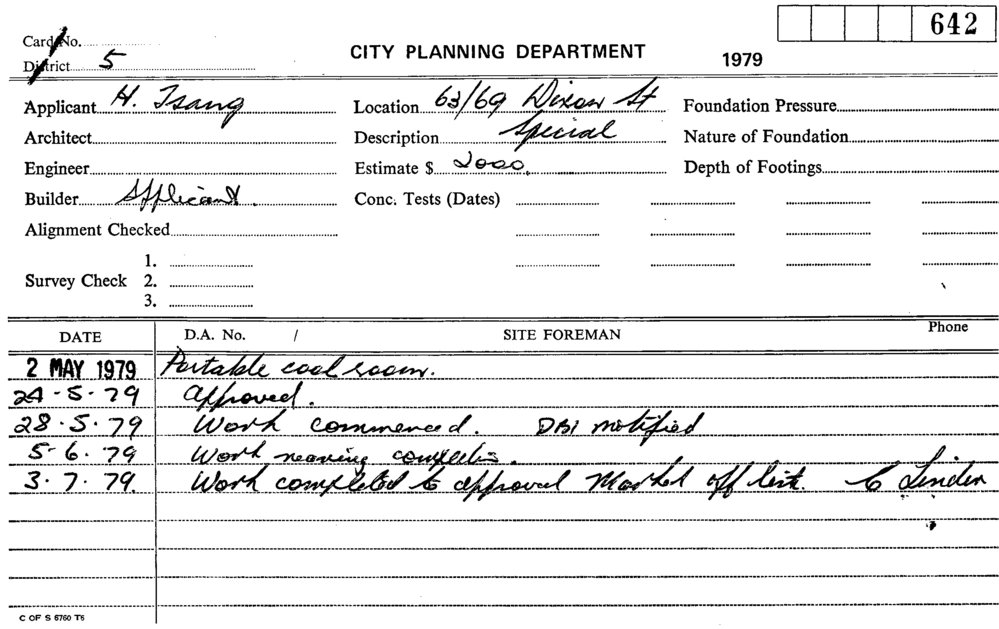 642
Card No.
District 5
CITY PLANNING DEPARTMENT 1979
Applicant H. Tsang Location 63/69 Dixon St Foundation Pressure
Architect Description Special Nature of Foundation
Engineer Estimate $ 2000. Depth of Footings
Builder Applicant. Conc. Tests (Dates)
Alignment Checked
1.
Survey Check 2.
3.
DATE D.A. No. / SITE FOREMAN Phone
2 MAY 1979 Portable cool room.
24-5-79 Approved.
28.5.79 Work commenced. DBI notified
5-6.79 Work nearing completion.
3.7.79. Work completed to approval Marked off list. C Linden
C OF S 6760 T5